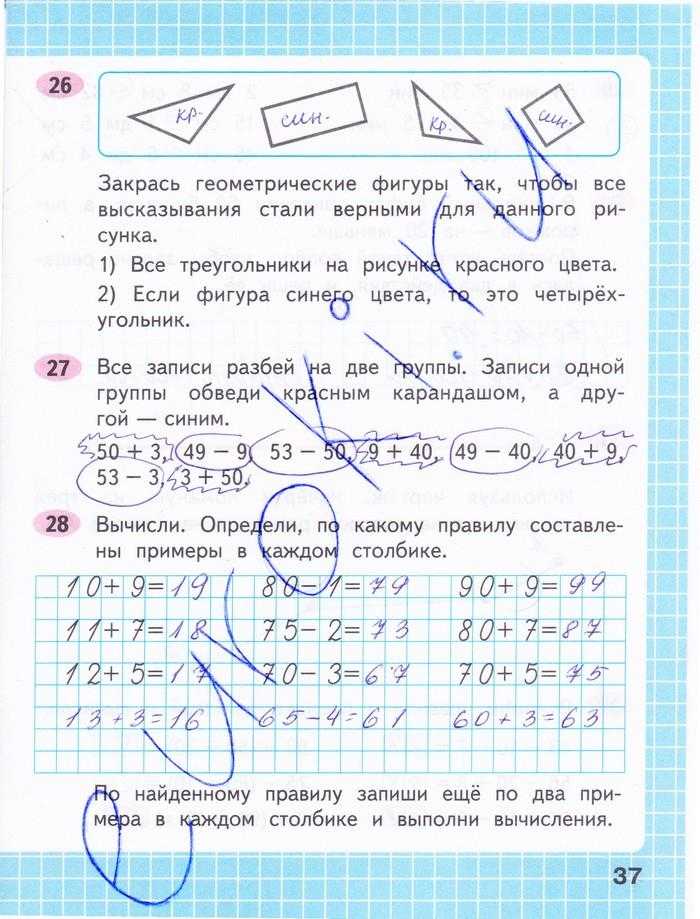 26
кр. син. кр. син.
Закрась геометрические фигуры так, чтобы все
высказывания стали верными для данного ри-
сунка.
1) Все треугольники на рисунке красного цвета.
2) Если фигура синего цвета, то это четырёх-
угольник.
27
Все записи разбей на две группы. Записи одной
группы обведи красным карандашом, а дру-
гой — синим.
50 + 3, 49 − 9, 53 − 50, 9 + 40, 49 − 40, 40 + 9,
53 − 3, 3 + 50.
28
Вычисли. Определи, по какому правилу составле-
ны примеры в каждом столбике.
10+ 9=19 80− 1=79 90+ 9=99
11+ 7=18 75− 2=73 80+ 7=87
12+ 5=17 70− 3=67 70+ 5=75
13+3=16 65−4=61 60+3=63
По найденному правилу запиши ещё по два при-
мера в каждом столбике и выполни вычисления.
37